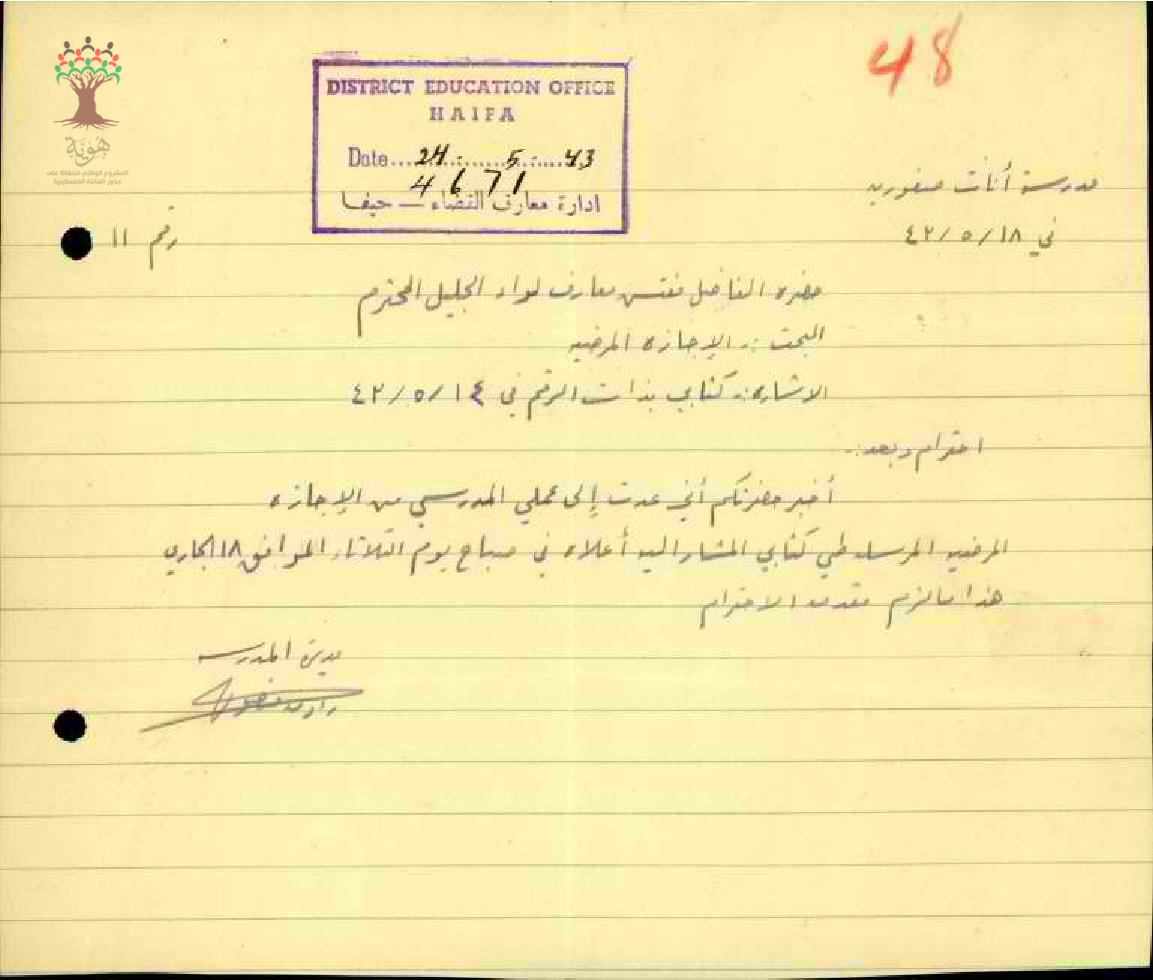 48
هُوِيَّة
المشروع الوطني للحفاظ على
جذور العائلة الفلسطينية
DISTRICT EDUCATION OFFICE
HAIFA
Date....24.-......5.-....43
4671
ادارة معارف القضاء — حيفا
مدرسة أناث صفوريه
في ١٨/٥/٤٣
رقم ١١
حضرة الفاضل مفتش معارف لواء الجليل المحترم
البحث :- الإجازه المرضيه
الاشاره:- كتابي بذات الرقم في ١٤/٥/٤٣
احترام وبعد:-
أخبر حضرتكم أني عدت إلى عملي المدرسي من الإجازه
المرضيه المرسله طي كتابي المشار اليه أعلاه في صباح يوم الثلاثاء الموافق ١٨ الجاري
هذا ما لزم مقدمه الاحترام
مديرة المدرسه